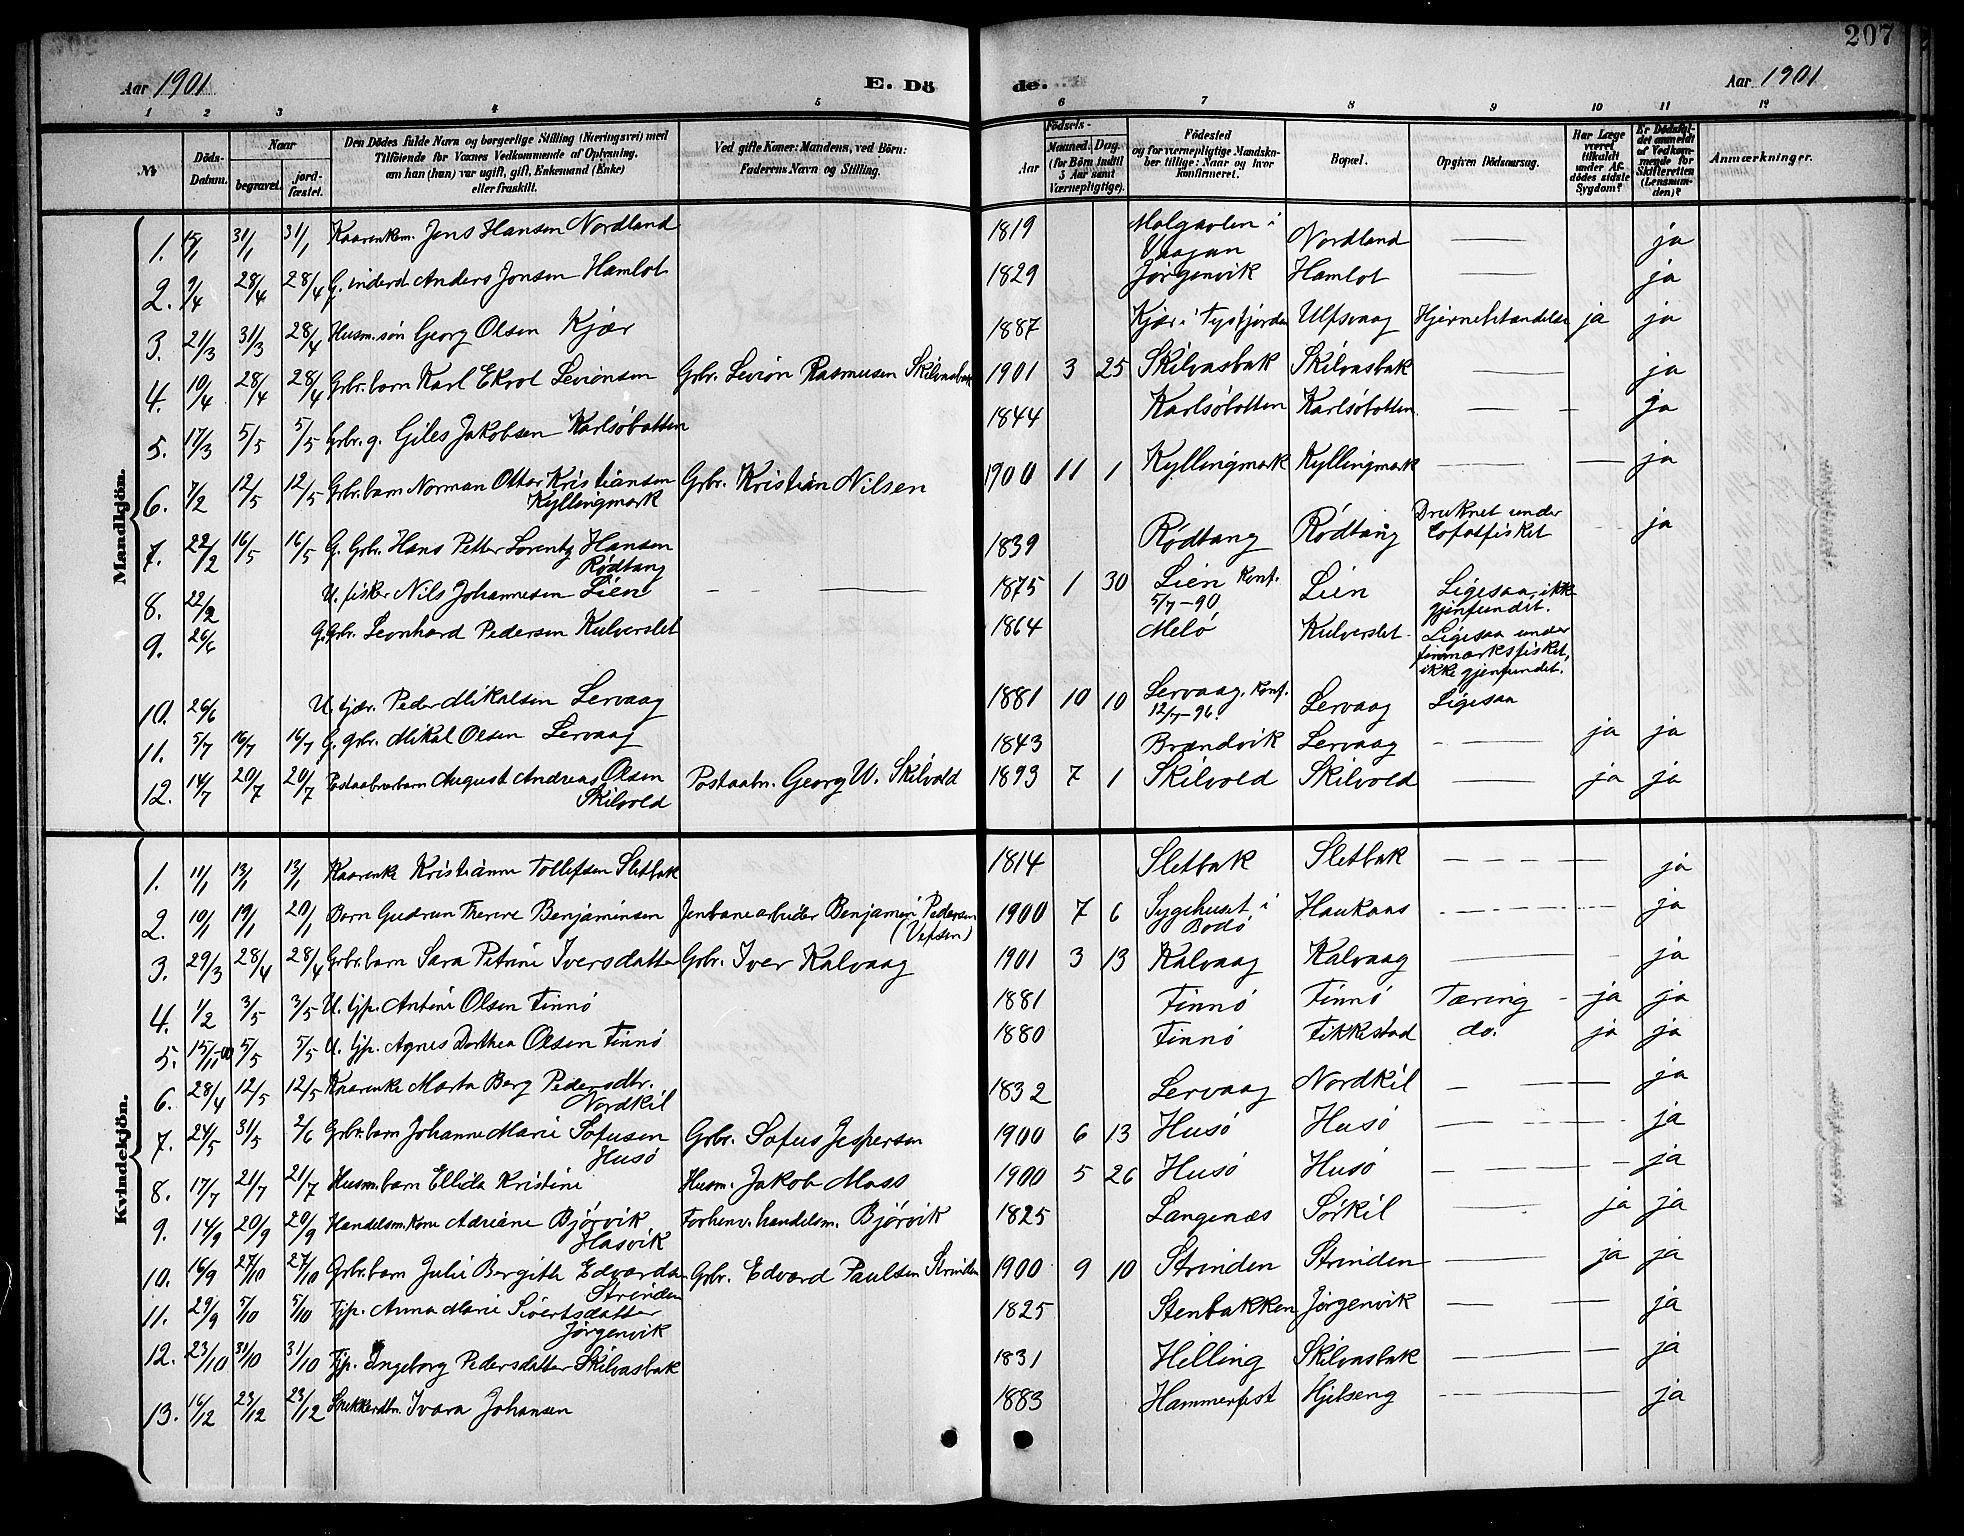 207
Aar 1901 E. Dö de. Aar 1901
1 2 3 4 5 6 7 8 9 10 11 12
No. Döds-Datum. Naar begravet. jord-fæstet. Den Dödes fulde Navn og borgerlige Stilling (Næringsvei) med Tilföiende for Voxnes Vedkommende af Oplysning, om han (hun) var ugift, gift, Enkemand (Enke) eller fraskilt. Ved gifte Koner: Mandens, ved Börn: Faderens Navn og Stilling. Födsels- Aar Maaned. Dag. (for Börn indtil 3 Aar samt Værnepligtige). Födested og for værnepligtige Mandskaber tillige: Naar og hvor konfirmeret. Bopæl. Opgiven Dödsaarsag. Har Læge været tilkaldt under Afdödes sidste Sygdom? Er Dödsfaldet anmeldt af Vedkommende for Skifteretten (Lensmanden)? Anmærkninger.
Mandkjön.
1. 15/1 31/1 31/1 Kaarenkem. Jens Hansen Nordland 1819 Molgavlen i Vaagan Nordland — ja
2. 9/4 28/4 28/4 G. inderst Anders Jonsen Hamlot 1829 Jørgenvik Hamlot — ja
3. 21/3 31/3 28/4 Husm.søn Georg Olsen Kjær 1887 Kjær i Tysfjorden Ulfsvaag Hjernebetændelse ja ja
4. 10/4 28/4 28/4 Grbr.barn Karl Ekrol Levionsen Grbr. Levion Rasmusen Skilvasbak 1901 3 25 Skilvasbak Skilvasbak — ja
5. 17/3 5/5 5/5 Grbr. g. Giles Jakobsen Karlsöbotten 1844 Karlsöbotten Karlsöbotten — — ja
6. 7/2 12/5 12/5 Grbr.barn Norman Ottar Kristiansen Kyllingmark Grbr. Kristian Nilsen 1900 11 1 Kyllingmark Kyllingmark — — ja
7. 22/2 16/5 16/5 G. Grbr. Hans Petter Lorentz Hansen Rødtang 1839 Rødtang Rødtang Druknet under Lofotfisket ja
8. 22/2 U. fisker Nils Johannesen Lien — — 1875 1 30 Lien Konf. 5/7-90 Lien Ligesaa, ikke gjenfundet.
9. 26/6 G. Grbr. Leonhard Pedersen Kulverslet 1864 Melö Kulverslet Ligesaa under finmarksfisket, ikke gjenfundet.
10. 26/6 U. tjær. Peder Mikalsen Lervaag 1881 10 10 Lervaag, Konf. 12/7-96. Lervaag Ligesaa
11. 5/7 16/7 16/7 G. grbr. Mikal Olsen Lervaag 1843 Brandvik Lervaag — ja ja
12. 14/7 20/7 20/7 Postaabnerbarn August Andreas Olsen Skilvold Postaabn. Georg W. Skilvold 1893 7 1 Skilvold Skilvold — ja ja
Kvindekjön.
1. 11/1 13/1 13/1 Kaarenke Kristianne Tollefsen Sletbak 1814 Sletbak Sletbak — ja
2. 10/1 19/1 20/1 Barn Gudrun Therese Benjaminsen Jenbanearbeider Benjamin Pedersen (Vefsen) 1900 7 6 Sygehuset i Bodö Haukaas — ja
3. 29/3 28/4 28/4 Grbr.barn Sara Petrine Iversdatter Grbr. Iver Kalvaag 1901 3 13 Kalvaag Kalvaag — ja
4. 1/2 3/5 3/5 U. tjp. Antine Olsen Finnö 1881 Finnö Finnö Tæring ja ja
5. 15/11 00 5/5 5/5 U. tjp. Agnes Dorthea Olsen Finnö 1880 Finnö Fikkstad do. ja ja
6. 28/4 12/5 12/5 Kaarenke Marta Berg Pedersdtr. Nordkil 1832 Lervaag Nordkil — ja
7. 24/5 31/5 2/6 Grbr.barn Johanne Marie Sofusen Husö Grbr. Sofus Jespersen 1900 6 13 Husö Husö — ja
8. 17/7 21/7 21/7 Husm.barn Ellida Kristine Husm. Jakob Moss 1900 5 26 Husö Husö — ja
9. 14/9 20/9 20/9 Handelsm.kone Adriane Bjørvik, Hasvik Forhenv. handelsm. Bjørvik 1825 Langenæs Sörkil ja ja
10. 16/9 27/10 27/10 Grbr.barn Julie Bergithe Edvardsen Strinden Grbr. Edvard Paulsen Strinden 1900 9 10 Strinden Strinden — ja ja
11. 29/9 5/10 5/10 Tjp. Anna Marie Sivertsdatter Jørgenvik 1825 Stenbakken Jørgenvik — ja
12. 23/10 31/10 31/10 Tjp. Ingeborg Pedersdatter Skilvasbak 1831 Helling Skilvasbak — ja
13. 16/12 23/12 23/12 Snekkerdtr. Ivara Johansen 1883 Hammerfest Hjelseng — ja